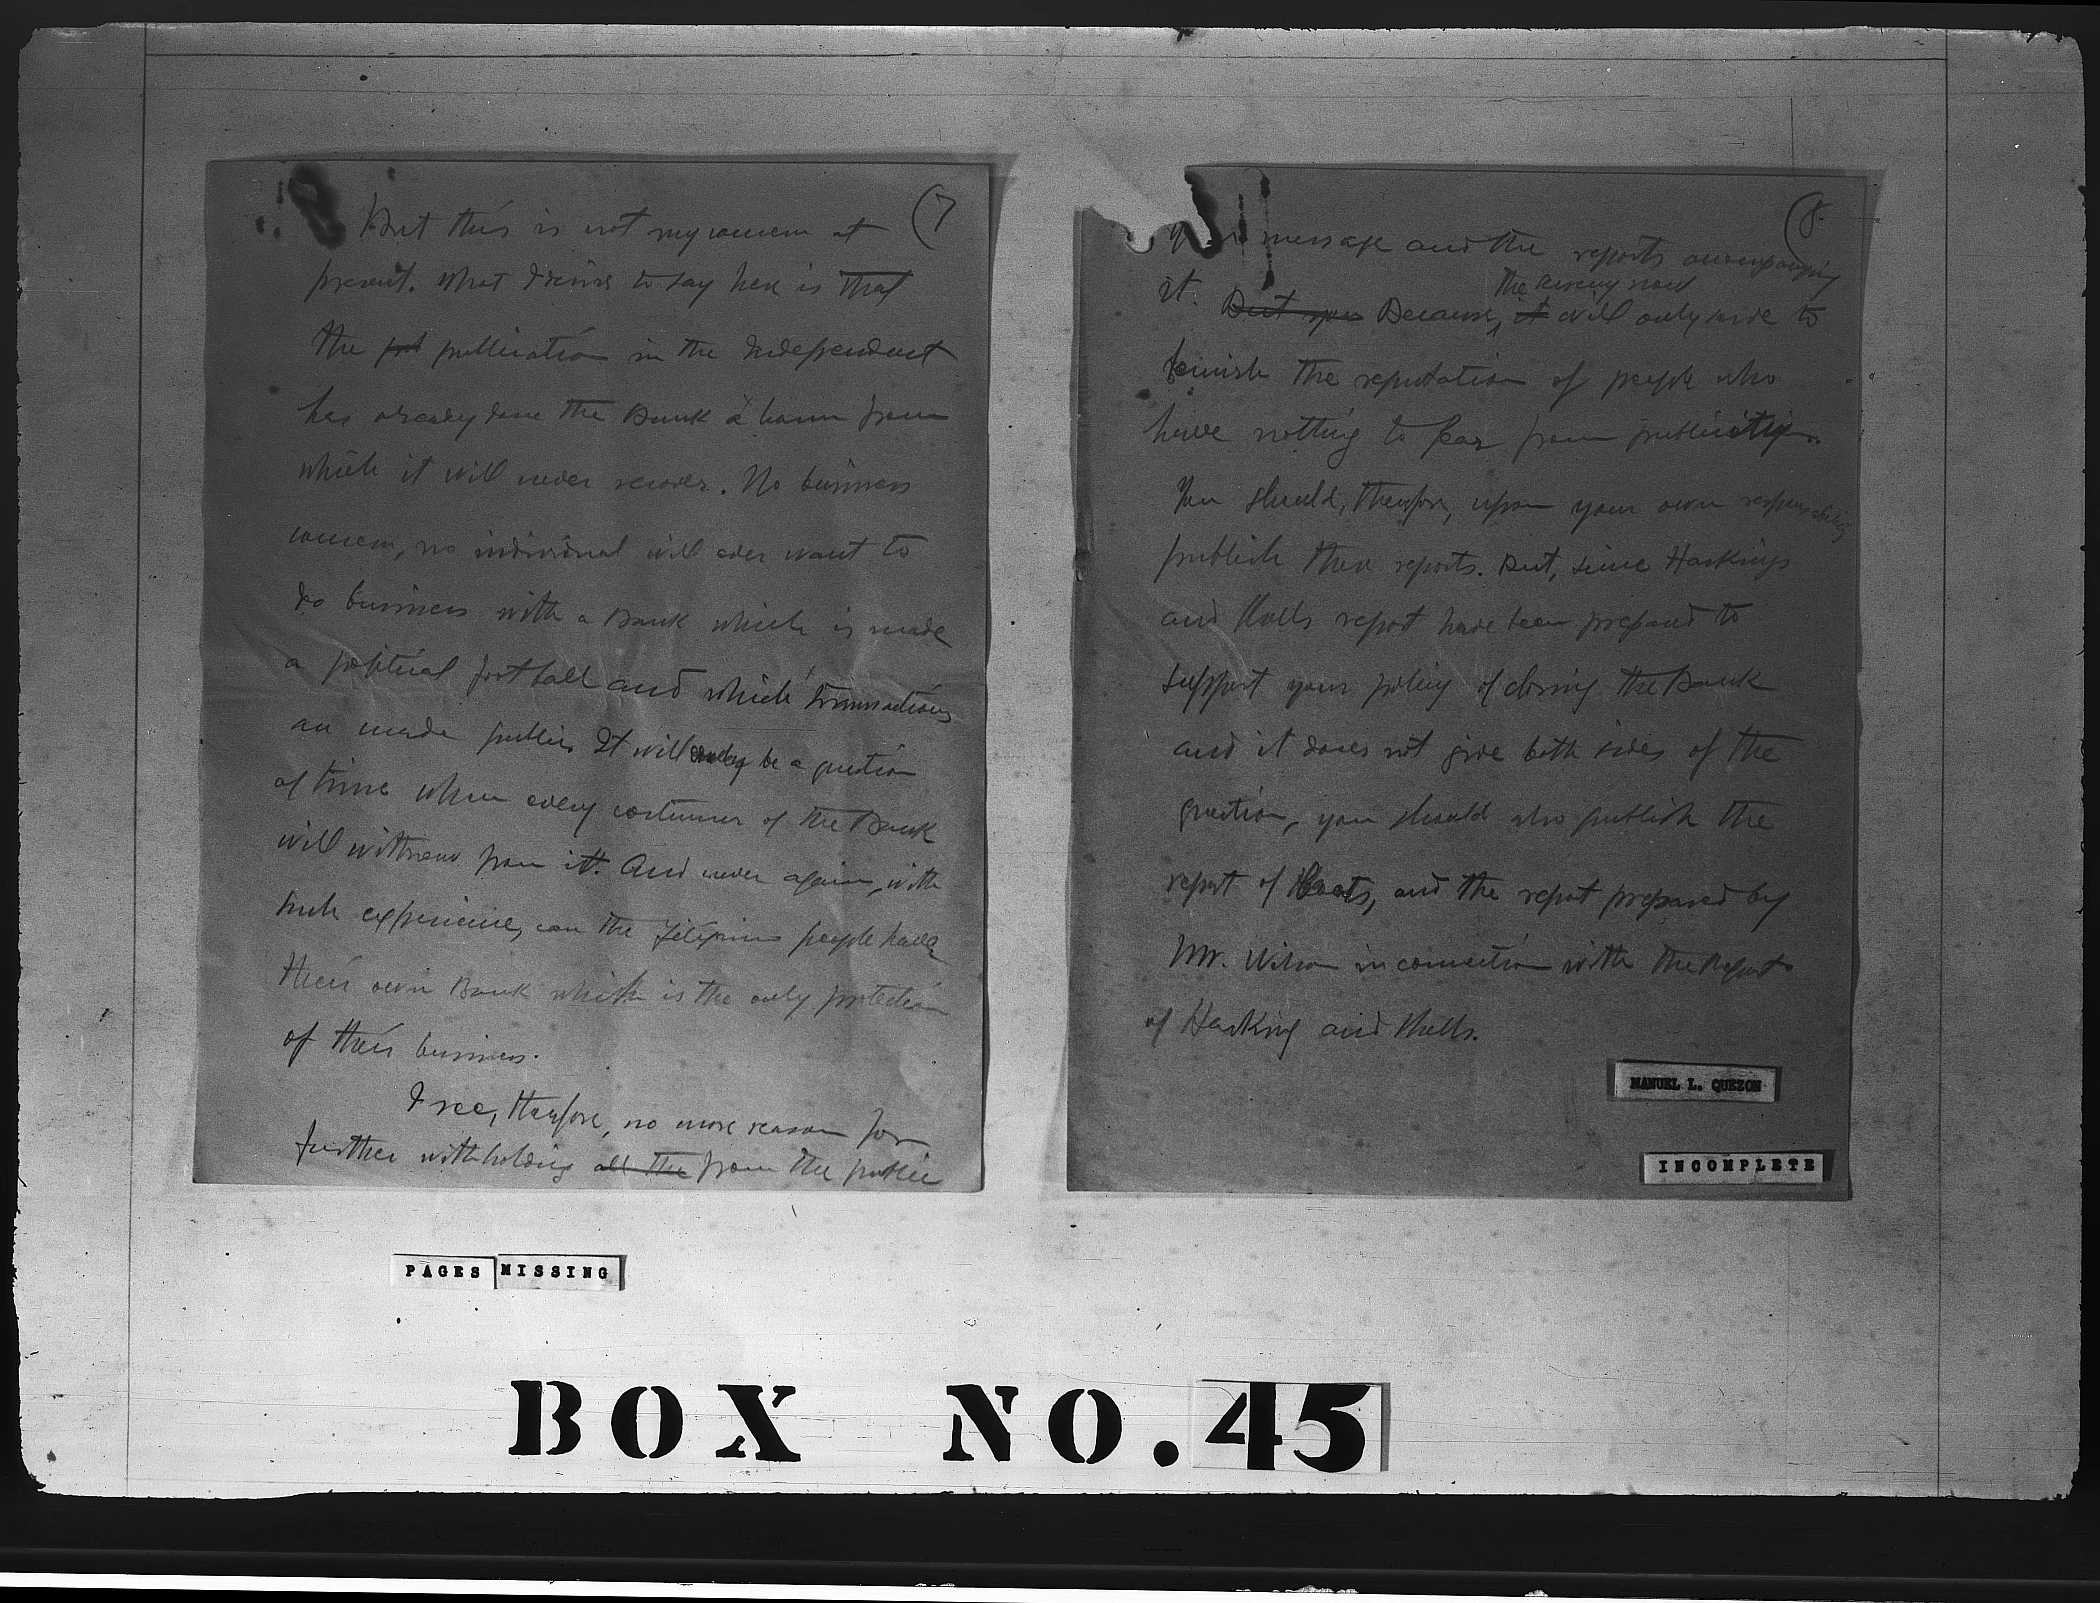 (7
But this is not my concern at
present. What I desire to say here is that
the pub publication in the Independent
has already done the Bank a harm from
which it will never recover. No business
concern, no individual will ever want to
do business with a Bank which is made
a political foot ball and which transactions
are made public. It will only be a question
of time when every costumer of the Bank
will withraw from it. And never again, with
such experience, can the Filipino people have
their own Bank which is the only protection
of their business.
I see, therefore, no more reason for
further withholding all the from the public
(8
message and the reports accompanying
the secrecy now
it. But you Because, it will only serve to
the reputation of people who
have nothing to fear from publication.
You should, therefore, upon your own responsibility
publish these reports. But, since Haskings
and report have been prepared to
support your policy of closing the Bank
and it does not give both sides of the
question, you should also publish the
report of Coats, and the report prepared by
Mr. Wilson in connection with the Report
of Hasking and
MANUEL L. QUEZON
INCOMPLETE
PAGES MISSING
BOX NO. 45